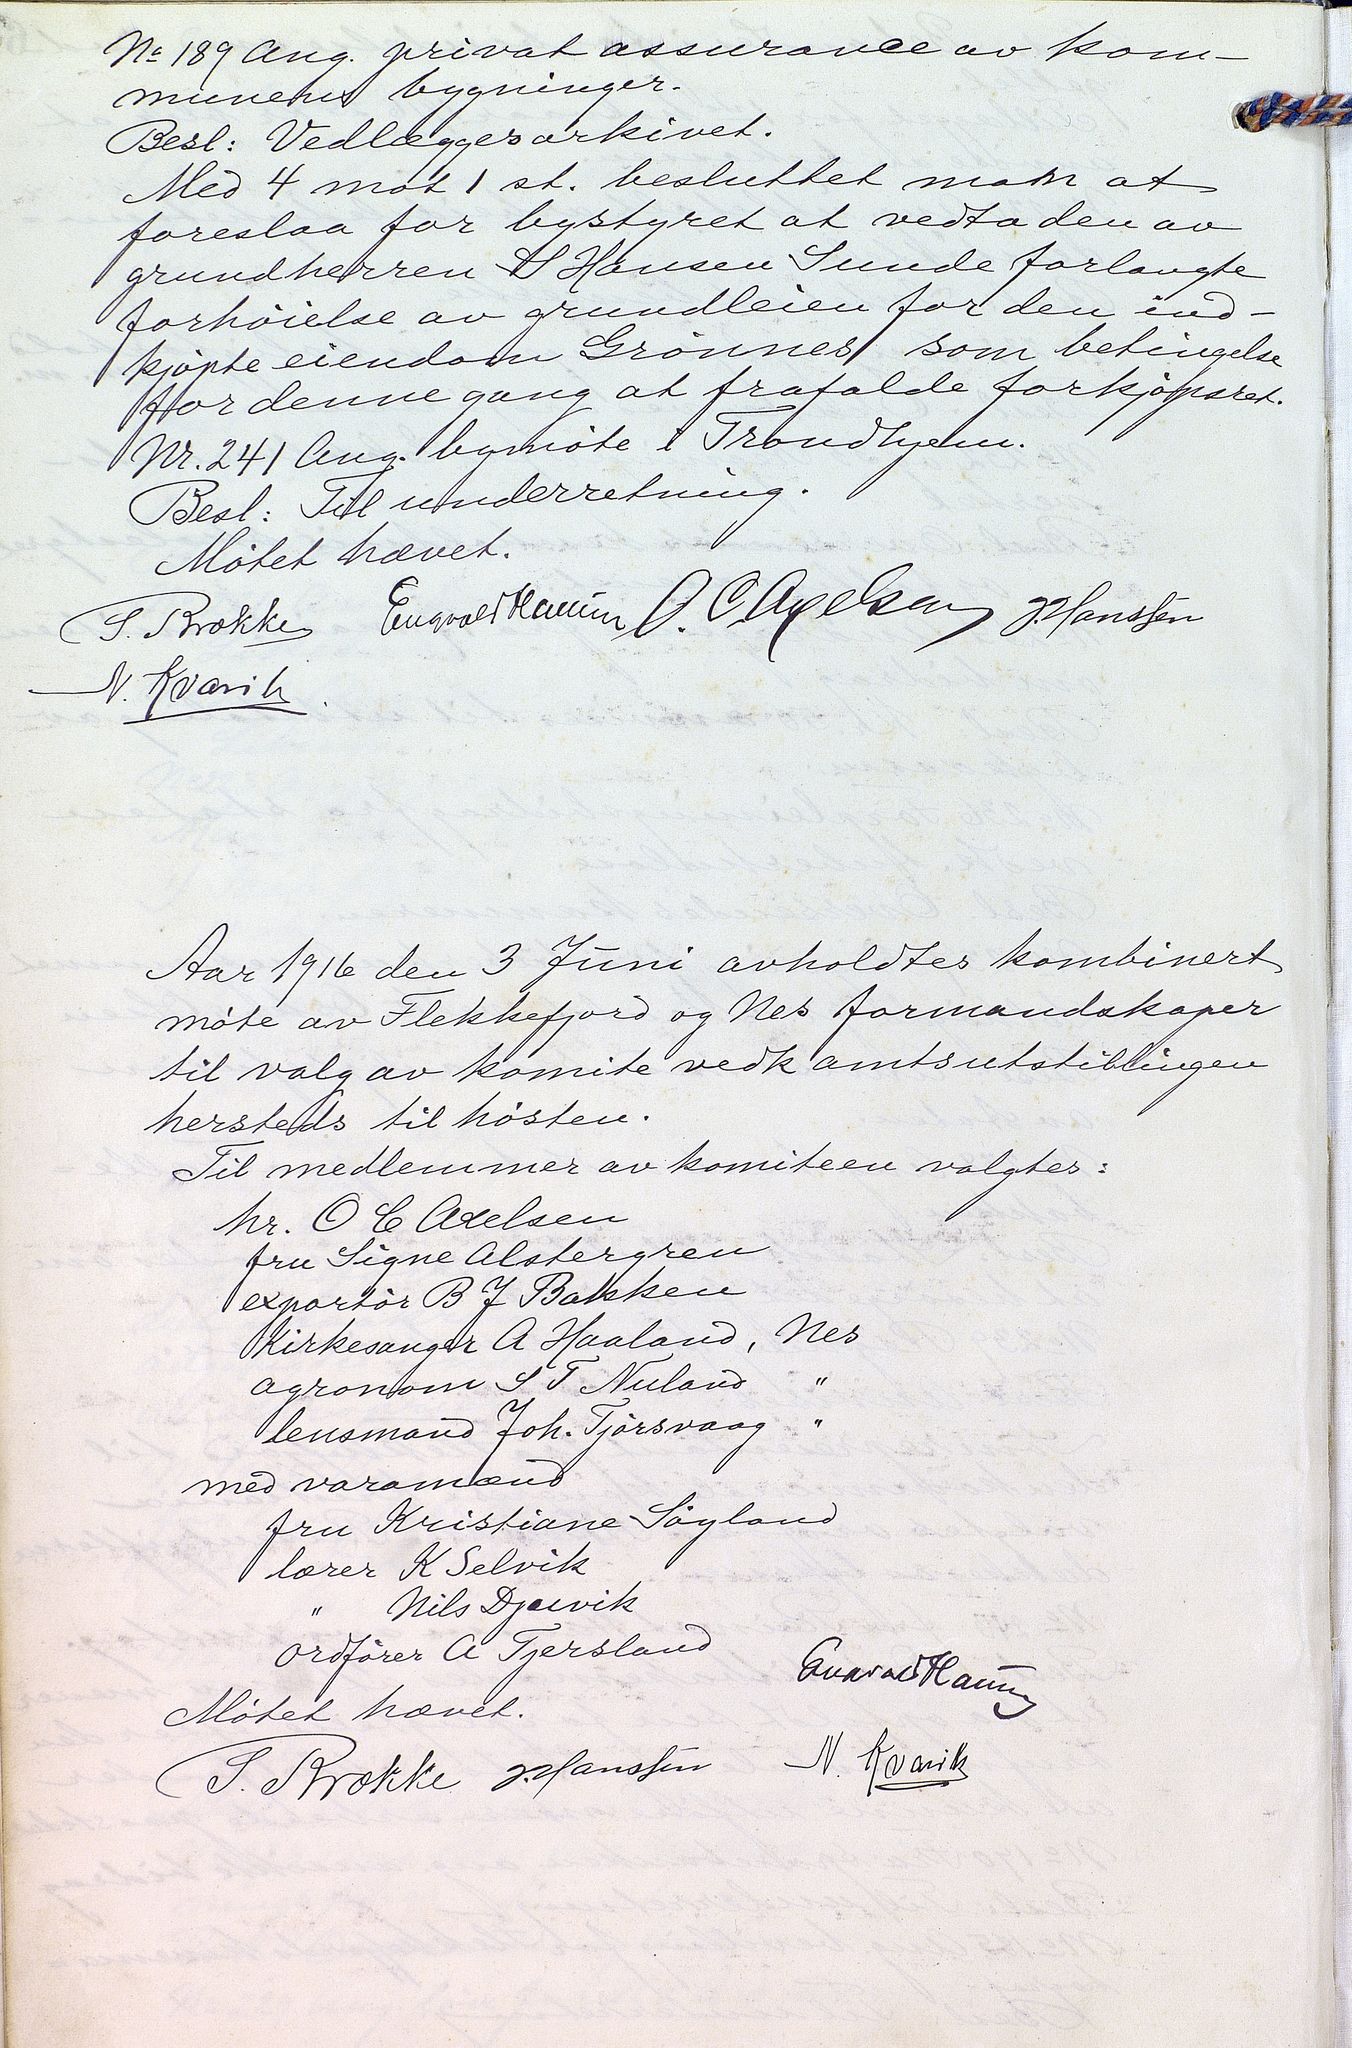 No 189 Ang. privat assurance av kom-
munens bygninger.
Besl: Vedlægges arkivet.
Med 4 mot 1 st. besluttet man at
foreslaa for bystyret at vedta den av
grundherren S Hansen Sunde forlangte
forhöielse av grundleien for den ind-
kjøpte eiendom Grönnes som betingelse
for denne gang at frafalde forkjøpsret.
Nr. 241 Ang. bymöte i Trondhjem.
Besl: Til underretning.
Mötet hævet.
S. Brække Engvald Hanssen O. C. Axelsen J. Hanssen
N. Kvavik
Aar 1916 den 3 Juni avholdtes kombinert
möte av Flekkefjord og Nes formandskaper
til valg av komite vedk amtsutstillingen
hersteds til hösten.
Til medlemmer av komiteen valgtes:
hr. O C Axelsen
fru Signe Alstergren
exportör B J Bakken
Kirkesanger A Haaland, Nes
agronom S T Nuland "
lensmand Joh. Tjörsvaag "
med varamænd
fru Kristiane Söyland
lærer K Selvik
" Nils Djuvik
Ordförer A Tjersland
Engvald
Mötet hævet.
S. Brække J. Hanssen N. Kvavik